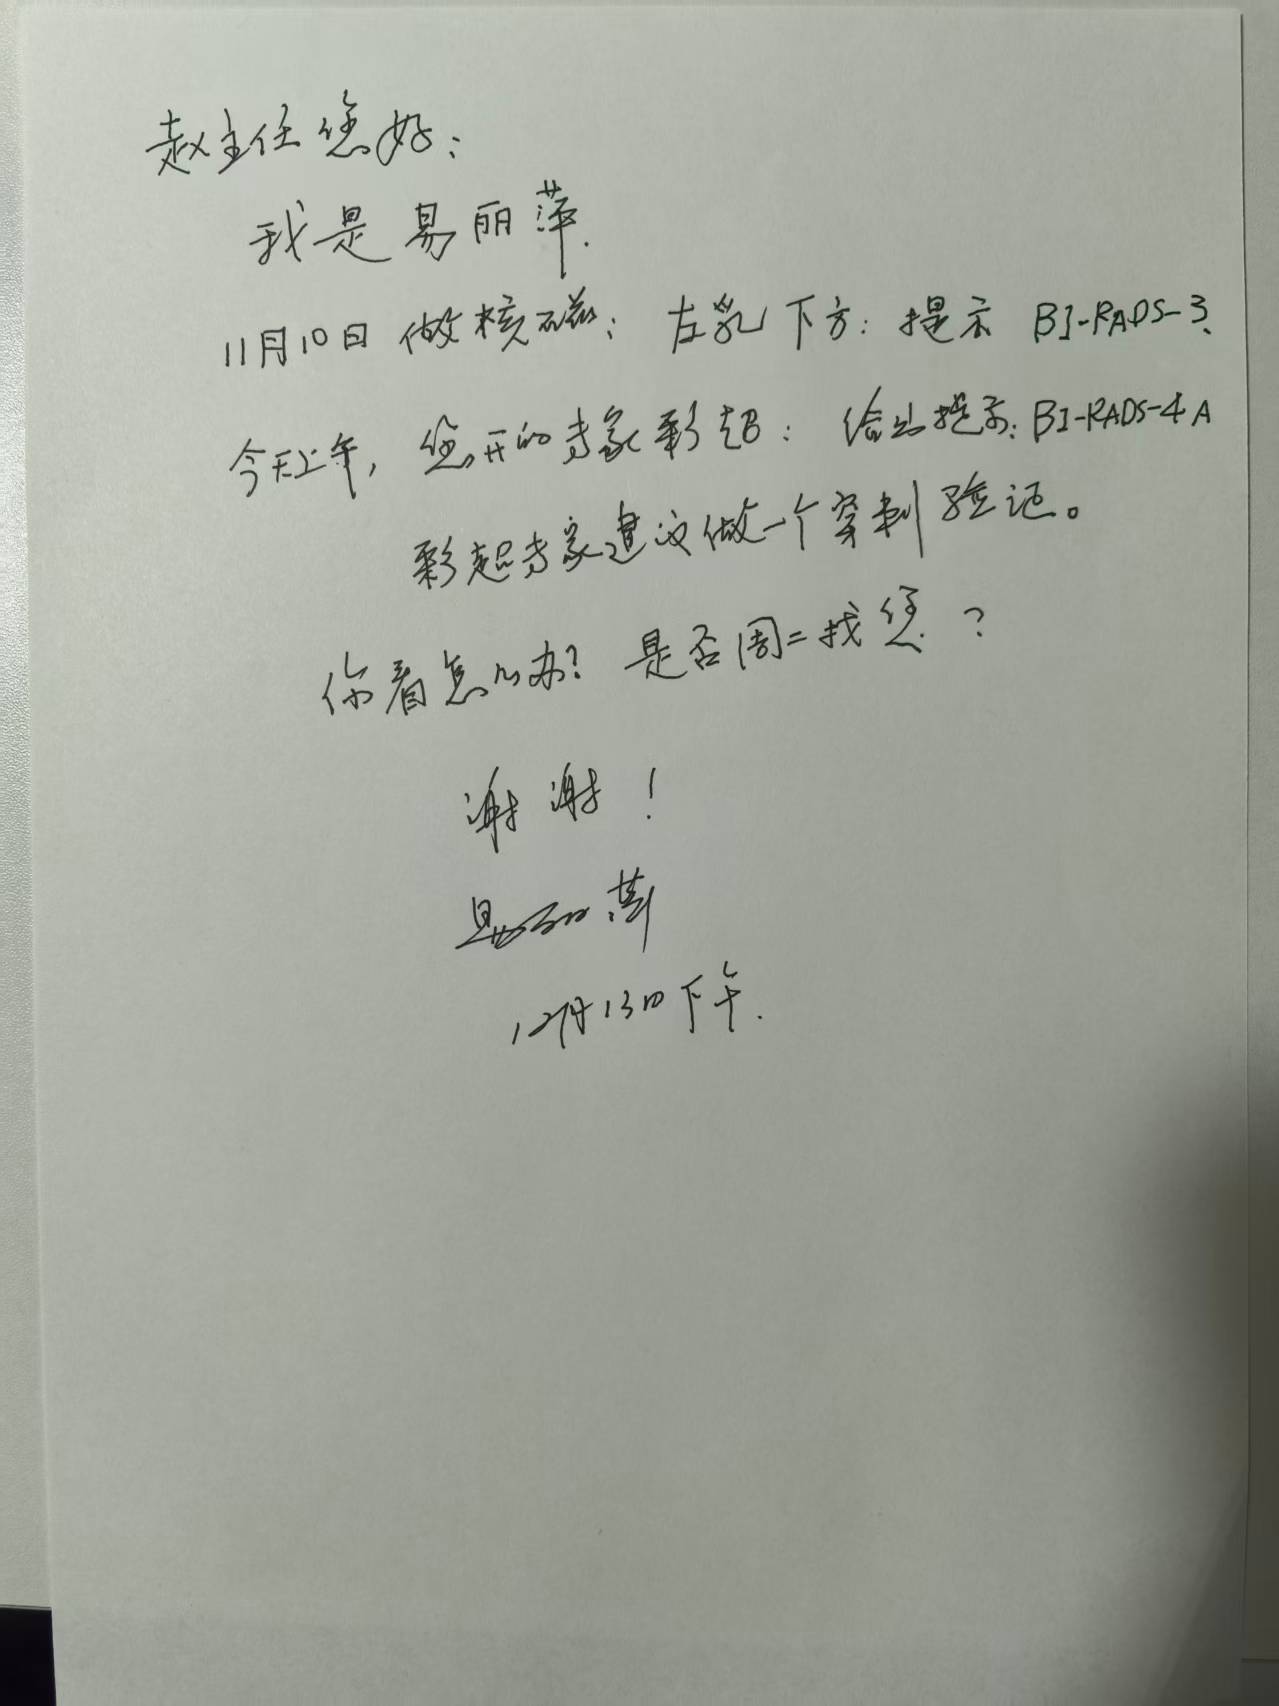 赵主任您好：
我是易丽萍.
11月10日做核磁：左乳下方：提示 BI-RADS-3、
今天上午，您开的专家彩超：给出提示：BI-RADS-4A
彩超专家建议做一个穿刺验证。
你看怎么办？是否周二找您？
谢谢！
易丽萍
12月13日下午.